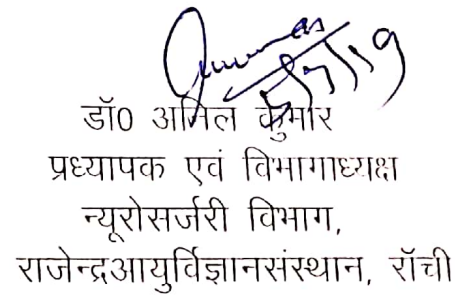 5/7/19
डॉ0 अनिल कुमार
प्रध्यापक एवं विभागाध्यक्ष
न्यूरोसर्जरी विभाग,
राजेन्द्रआयुर्विज्ञानसंस्थान, रॉची